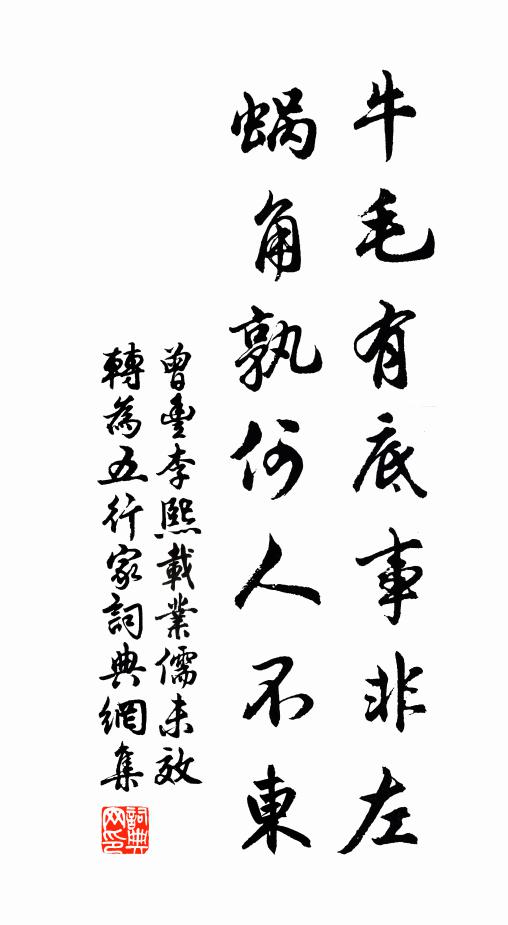 牛毛有底事非左
蝸角孰何人不東
曾豊李熙載業儒未效
轉為五行家詞典網集
詞典
网印